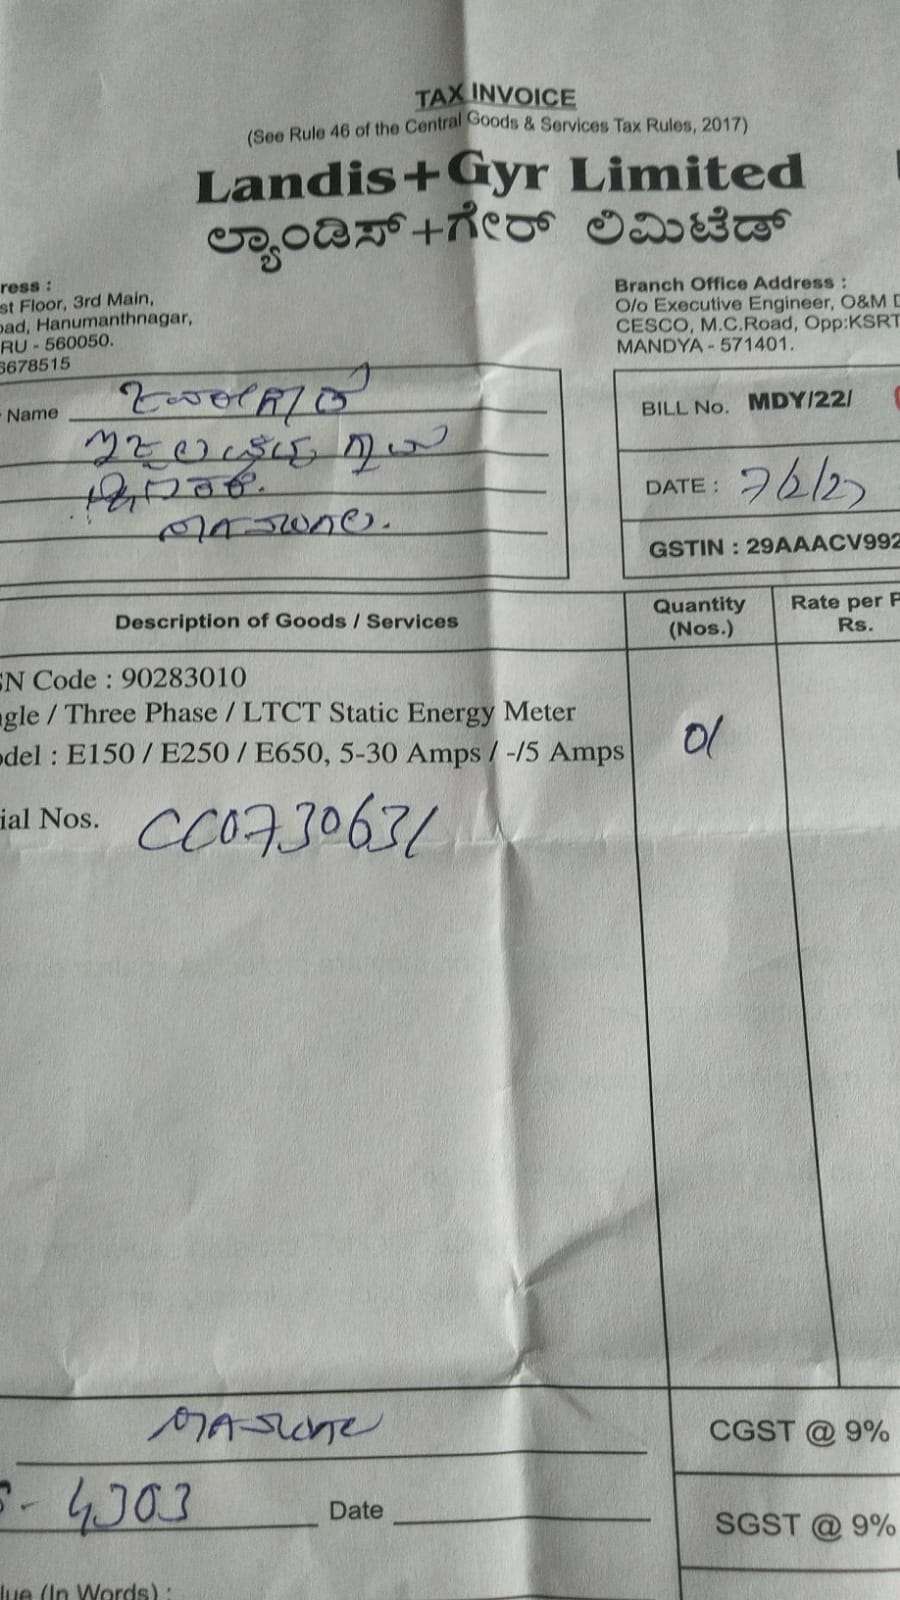 TAX INVOICE
(See Rule 46 of the Central Goods & Services Tax Rules, 2017)
Landis+Gyr Limited
ಲ್ಯಾಂಡಿಸ್+ಗೇರ್ ಲಿಮಿಟೆಡ್
ress :
st Floor, 3rd Main,
oad, Hanumanthnagar,
RU - 560050.
6678515
Branch Office Address :
O/o Executive Engineer, O&M D
CESCO, M.C.Road, Opp:KSRT
MANDYA - 571401.
Name
BILL No. MDY/22/
DATE : 7/2/23
GSTIN : 29AAACV992
Description of Goods / Services
Quantity (Nos.)
Rate per P
Rs.
SN Code : 90283010
ngle / Three Phase / LTCT Static Energy Meter
odel : E150 / E250 / E650, 5-30 Amps / -/5 Amps
01
ial Nos. CC0730631
CGST @ 9%
4303 Date
SGST @ 9%
lue (In Words) :